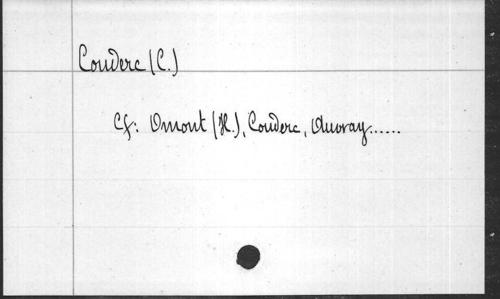 Couderc (C.)
Cf: Omont (H.), Couderc, Auvray......